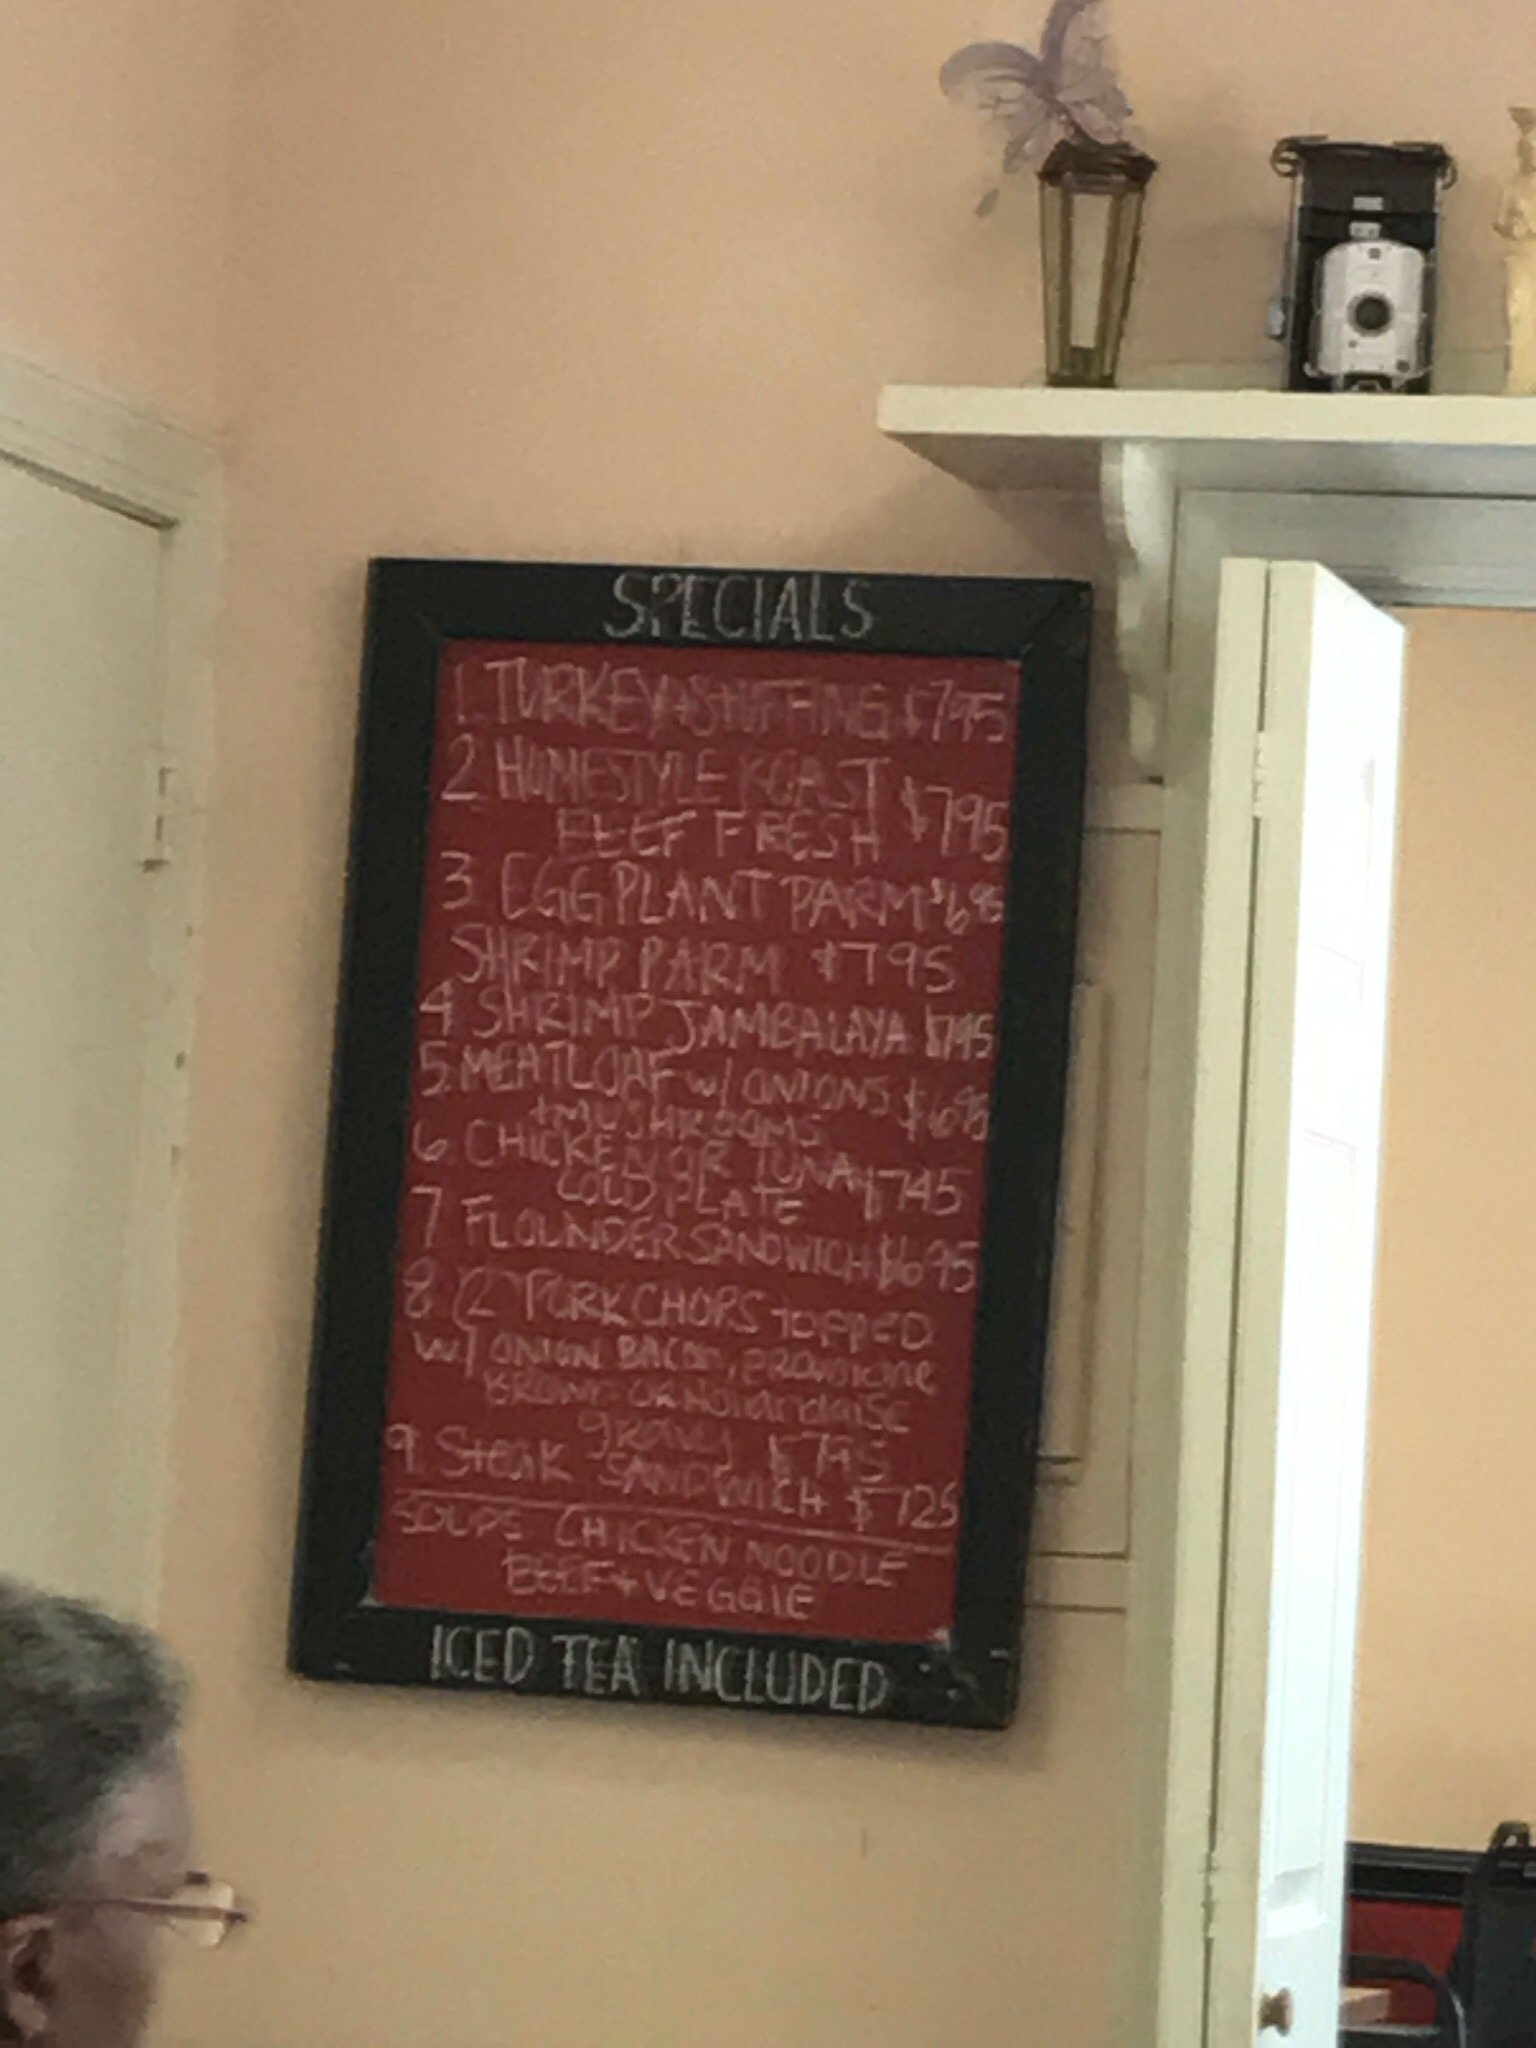 SPECIALS
1. TURKEY + STUFFING $795
2 HOMESTYLE ROAST
BEEF FRESH $795
3 EGGPLANT PARM $695
SHRIMP PARM $795
4 SHRIMP JAMBALAYA $795
5. MEATLOAF w/ ONIONS $695
+ MUSHROOMS
6. CHICKEN OR TUNA $745
COLD PLATE
7 FLOUNDER SANDWICH $695
8 (2) PORK CHOPS TOPPED
w/ ONION BACON, provolone
BROWN OR Hollandaise
gravy $795
9. Steak SANDWICH $725
SOUPS CHICKEN NOODLE
BEEF + VEGGIE
ICED TEA INCLUDED